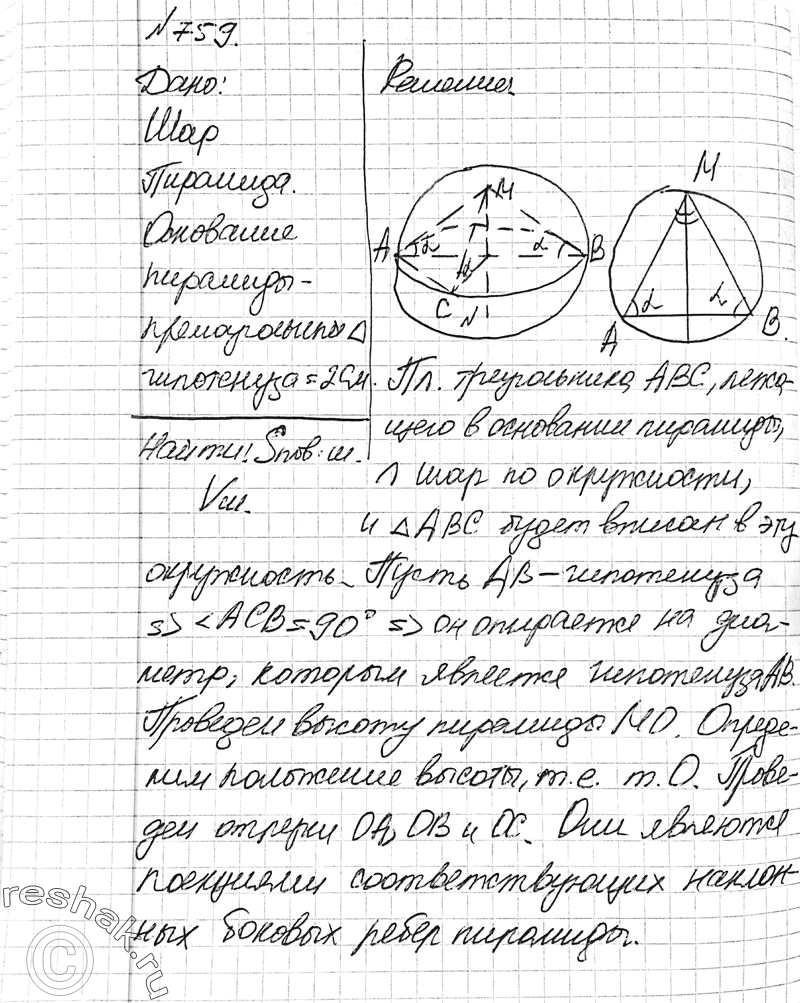 №759.
Дано:
Решение
Шар
Пирамида.
Основание
пирамиды-
прямоугольный △
гипотенуза = 2см.
Найти! Sпов. ш.
Vш.
M
A α α B
C N
M
α α
A B.
Пл. треугольника ABC, лежа-
щего в основании пирамиды,
∩ шар по окружности,
и △ABC будет вписан в эту
окружность. Пусть AB – гипотенуза
=> <ACB = 90° => он опирается на диа-
метр, которым является гипотенуза AB.
Проведем высоту пирамиды MO. Опреде-
лим положение высоты, т.е. т.O. Прове-
дем отрезки OA, OB и OC. Они являются
проекциями соответствующих наклон-
ных боковых ребер пирамиды.
reshak.ru
©